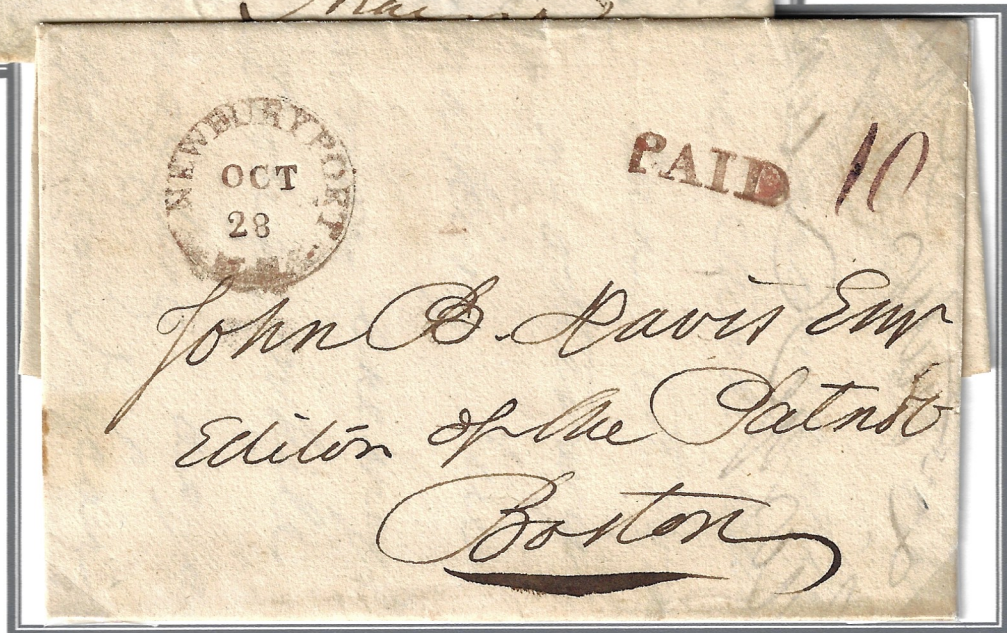 NEWBURYPORT
OCT
28
MS.
PAID 10
John B. Davis Esqr
Editor of the Patriot
Boston